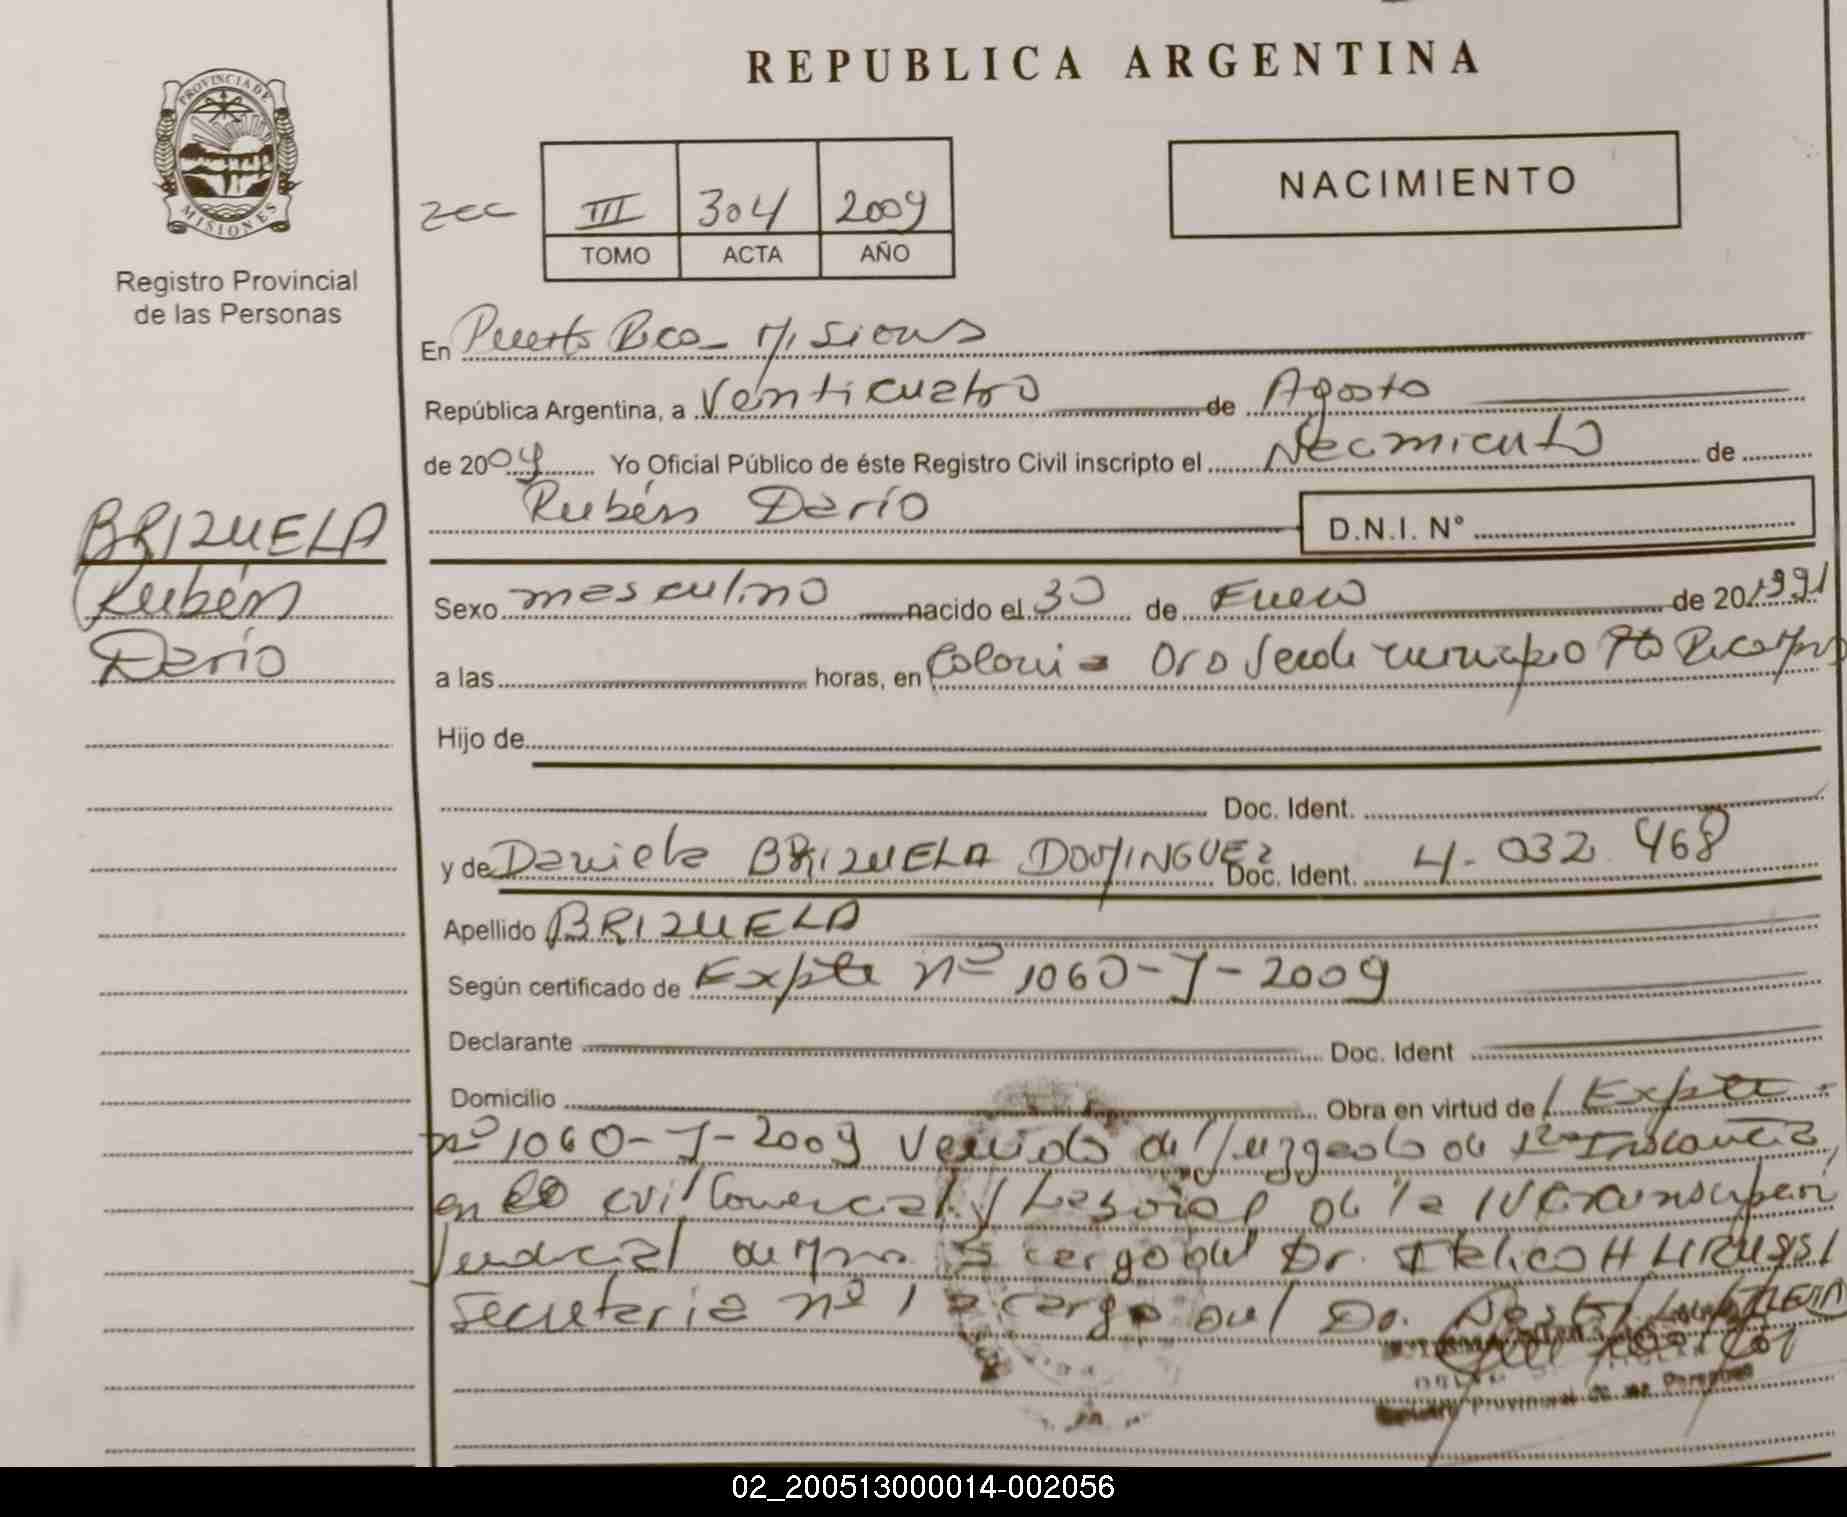 REPUBLICA ARGENTINA
PROVINCIA DE
MISIONES
Registro Provincial
de las Personas
NACIMIENTO
III 304 2009
TOMO ACTA AÑO
En Puerto Rico - Misiones
República Argentina, a Venticuatro de Agosto
de 2009 Yo Oficial Público de éste Registro Civil inscripto el Nacimiento de
Rubén Darío D.N.I. N°
BRIZUELA
Rubén
Darío
Sexo masculino nacido el 30 de Enero de 20 1991
a las horas, en Colonia Oro Verde municipio Pto Rico Mns
Hijo de
Doc. Ident.
y de Daniela BRIZUELA DOMINGUEZ Doc. Ident. 4.032.468
Apellido BRIZUELA
Según certificado de Expte nº 1060-J-2009
Declarante Doc. Ident
Domicilio Obra en virtud de Expte
nº 1060-J-2009 Venido del Juzgado de 1ra Instancia
en lo civil Comercial y Laboral de la IV Circunscripción
Judicial de Mns a cargo del Dr.
Secretaria nº 1 a cargo del Dr.
Registro Provincial de las Personas
02_200513000014-002056